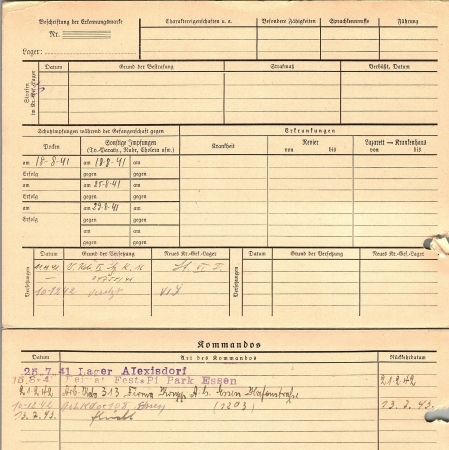 Beschriftung der Erkennungsmarke
Nr.
Lager:
Charaktereigenschaften u. a.
Besondere Fähigkeiten
Sprachkenntnisse
Führung
Strafen im Kr.-Gef.-Lager
Datum
Grund der Bestrafung
Strafmaß
Verbüßt, Datum
Schutzimpfungen während der Gefangenschaft gegen
Erkrankungen
Pocken
Sonstige Impfungen
(Ty.-Paraty., Ruhr, Cholera usw.)
Krankheit
Revier
von bis
Lazarett — Krankenhaus
von bis
am 18-8-41 am 18-8-41 am
Erfolg gegen gegen
am am 25-8-41 am
Erfolg gegen gegen
am am 29-8-41 am
Erfolg gegen gegen
am am
gegen gegen
Versetzungen
Datum Grund der Versetzung Neues Kr.-Gef.-Lager
Versetzungen
Datum Grund der Versetzung Neues Kr.-Gef.-Lager
10.12.42 VI J
Kommandos
Datum Art des Kommandos Rückkehrdatum
25.7.41 Lager Alexisdorf
Park Essen 2.1.42
2.1.42 Arb. Kdo 313 Firma Krupp A. G. Essen Hafenstraße
(1203) 13.2.43.
13.2.43.